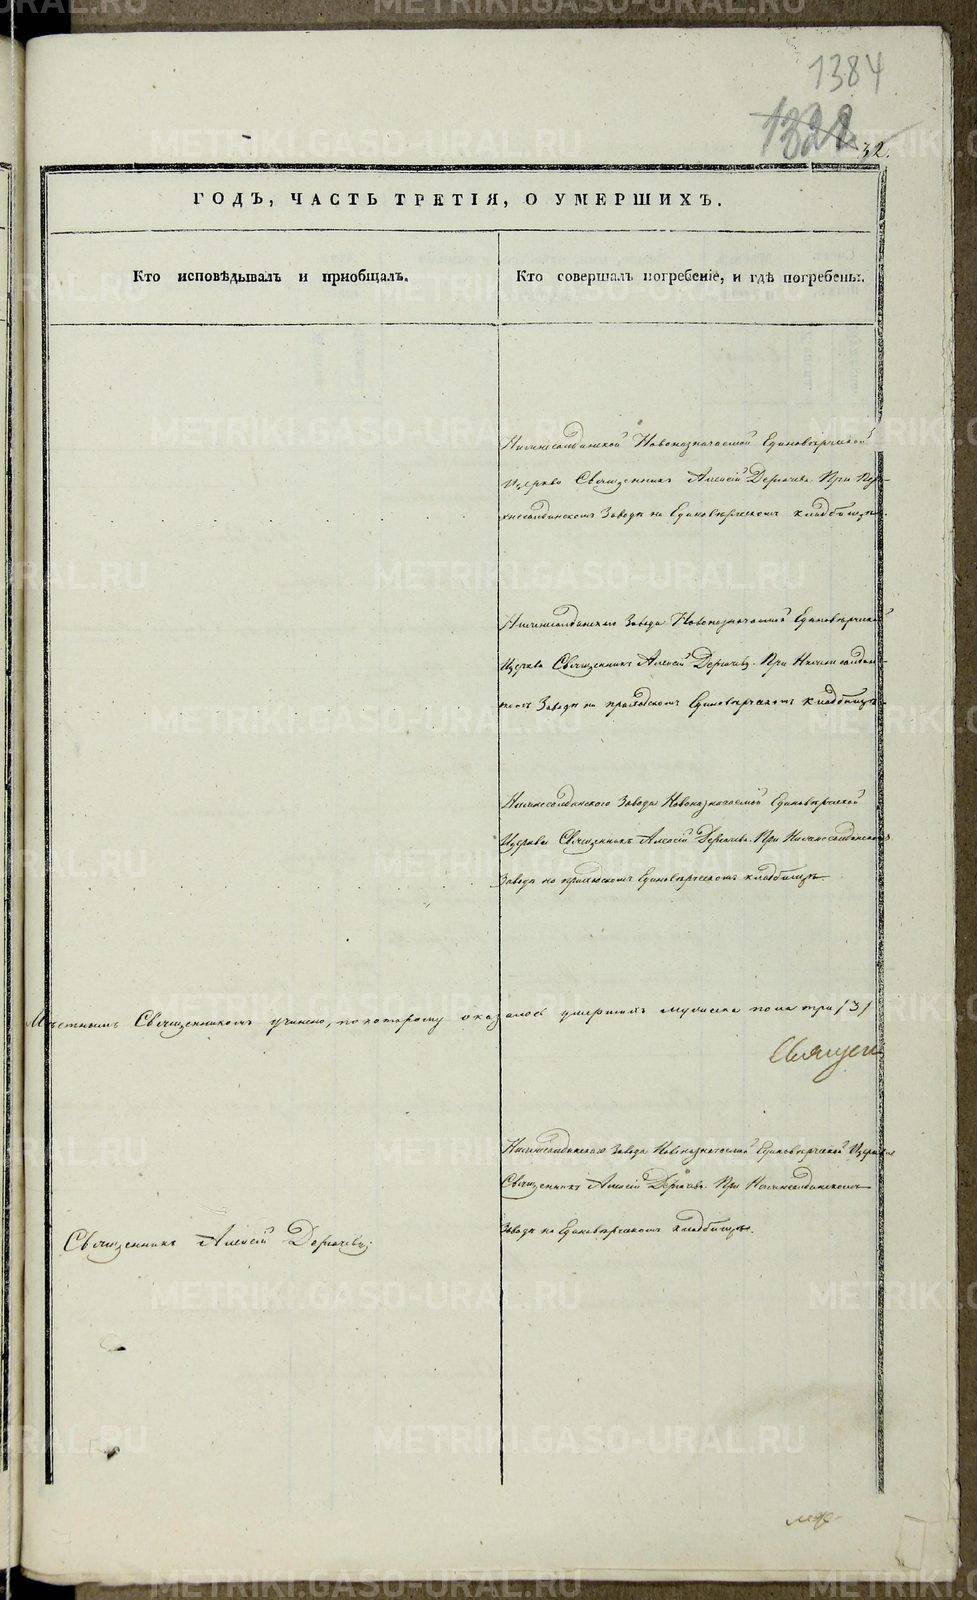 1384
1328
32.
ГОДЪ, ЧАСТЬ ТРЕТІЯ, О УМЕРШИХЪ.
Кто исповѣдывалъ и пріобщалъ.
Кто совершалъ погребеніе, и гдѣ погребены.
Нижнесалдинской Новоназначаемой Единовѣрческой
Церкви Священникъ Алексій Дерячевъ. При Вер-
хнесалдинскомъ Заводѣ на Единовѣрческомъ кладбищѣ.
Нижнесалдинскаго Завода Новоназначаемой Единовѣрческой
Церкви Священникъ Алексій При Нижнесалдин-
скомъ Заводѣ на приходскомъ Единовѣрческомъ кладбищѣ.
Нижнесалдинскаго Завода Новоназначаемой Единовѣрческой
Церкви Священникъ Алексій При Нижнесалдинскомъ
Заводѣ на приходскомъ Единовѣрческомъ кладбищѣ
Мѣстнымъ Священникомъ учинено, по которому оказалось умершихъ мужеска пола три /3/
Священ
Нижнесалдинскаго Завода Новоназначаемой Единовѣрческой Церкви
Священникъ Алексій При Нижнесалдинскомъ
Заводѣ на Единовѣрческомъ кладбищѣ.
Священникъ Алексій
METRIKI.GASO-URAL.RU